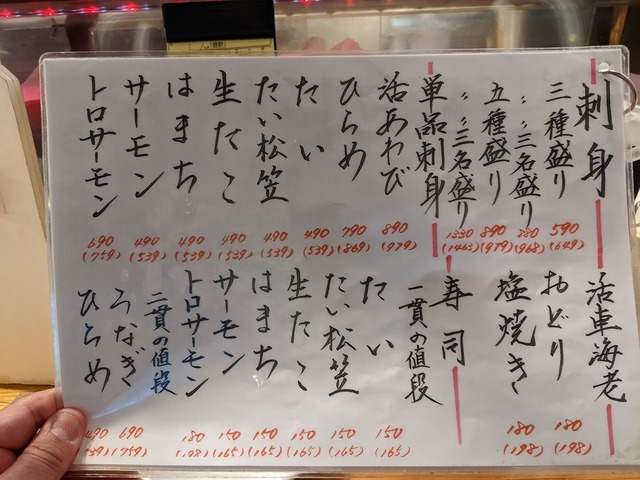 刺身
三種盛り 590 (649)
〃三名盛り 880 (968)
五種盛り 890 (979)
〃三名盛り 1330 (1463)
単品刺身
活あわび 890 (979)
ひらめ 790 (869)
たい 490 (539)
たい松笠 490 (539)
生たこ 490 (539)
はまち 490 (539)
サーモン 490 (539)
トロサーモン 690 (759)
活車海老
おどり 180 (198)
塩焼き 180 (198)
寿司
一貫の値段
たい 150 (165)
たい松笠 150 (165)
生たこ 150 (165)
はまち 150 (165)
サーモン 150 (165)
トロサーモン 180 (198)
二貫の値段
うなぎ 690 (759)
ひらめ